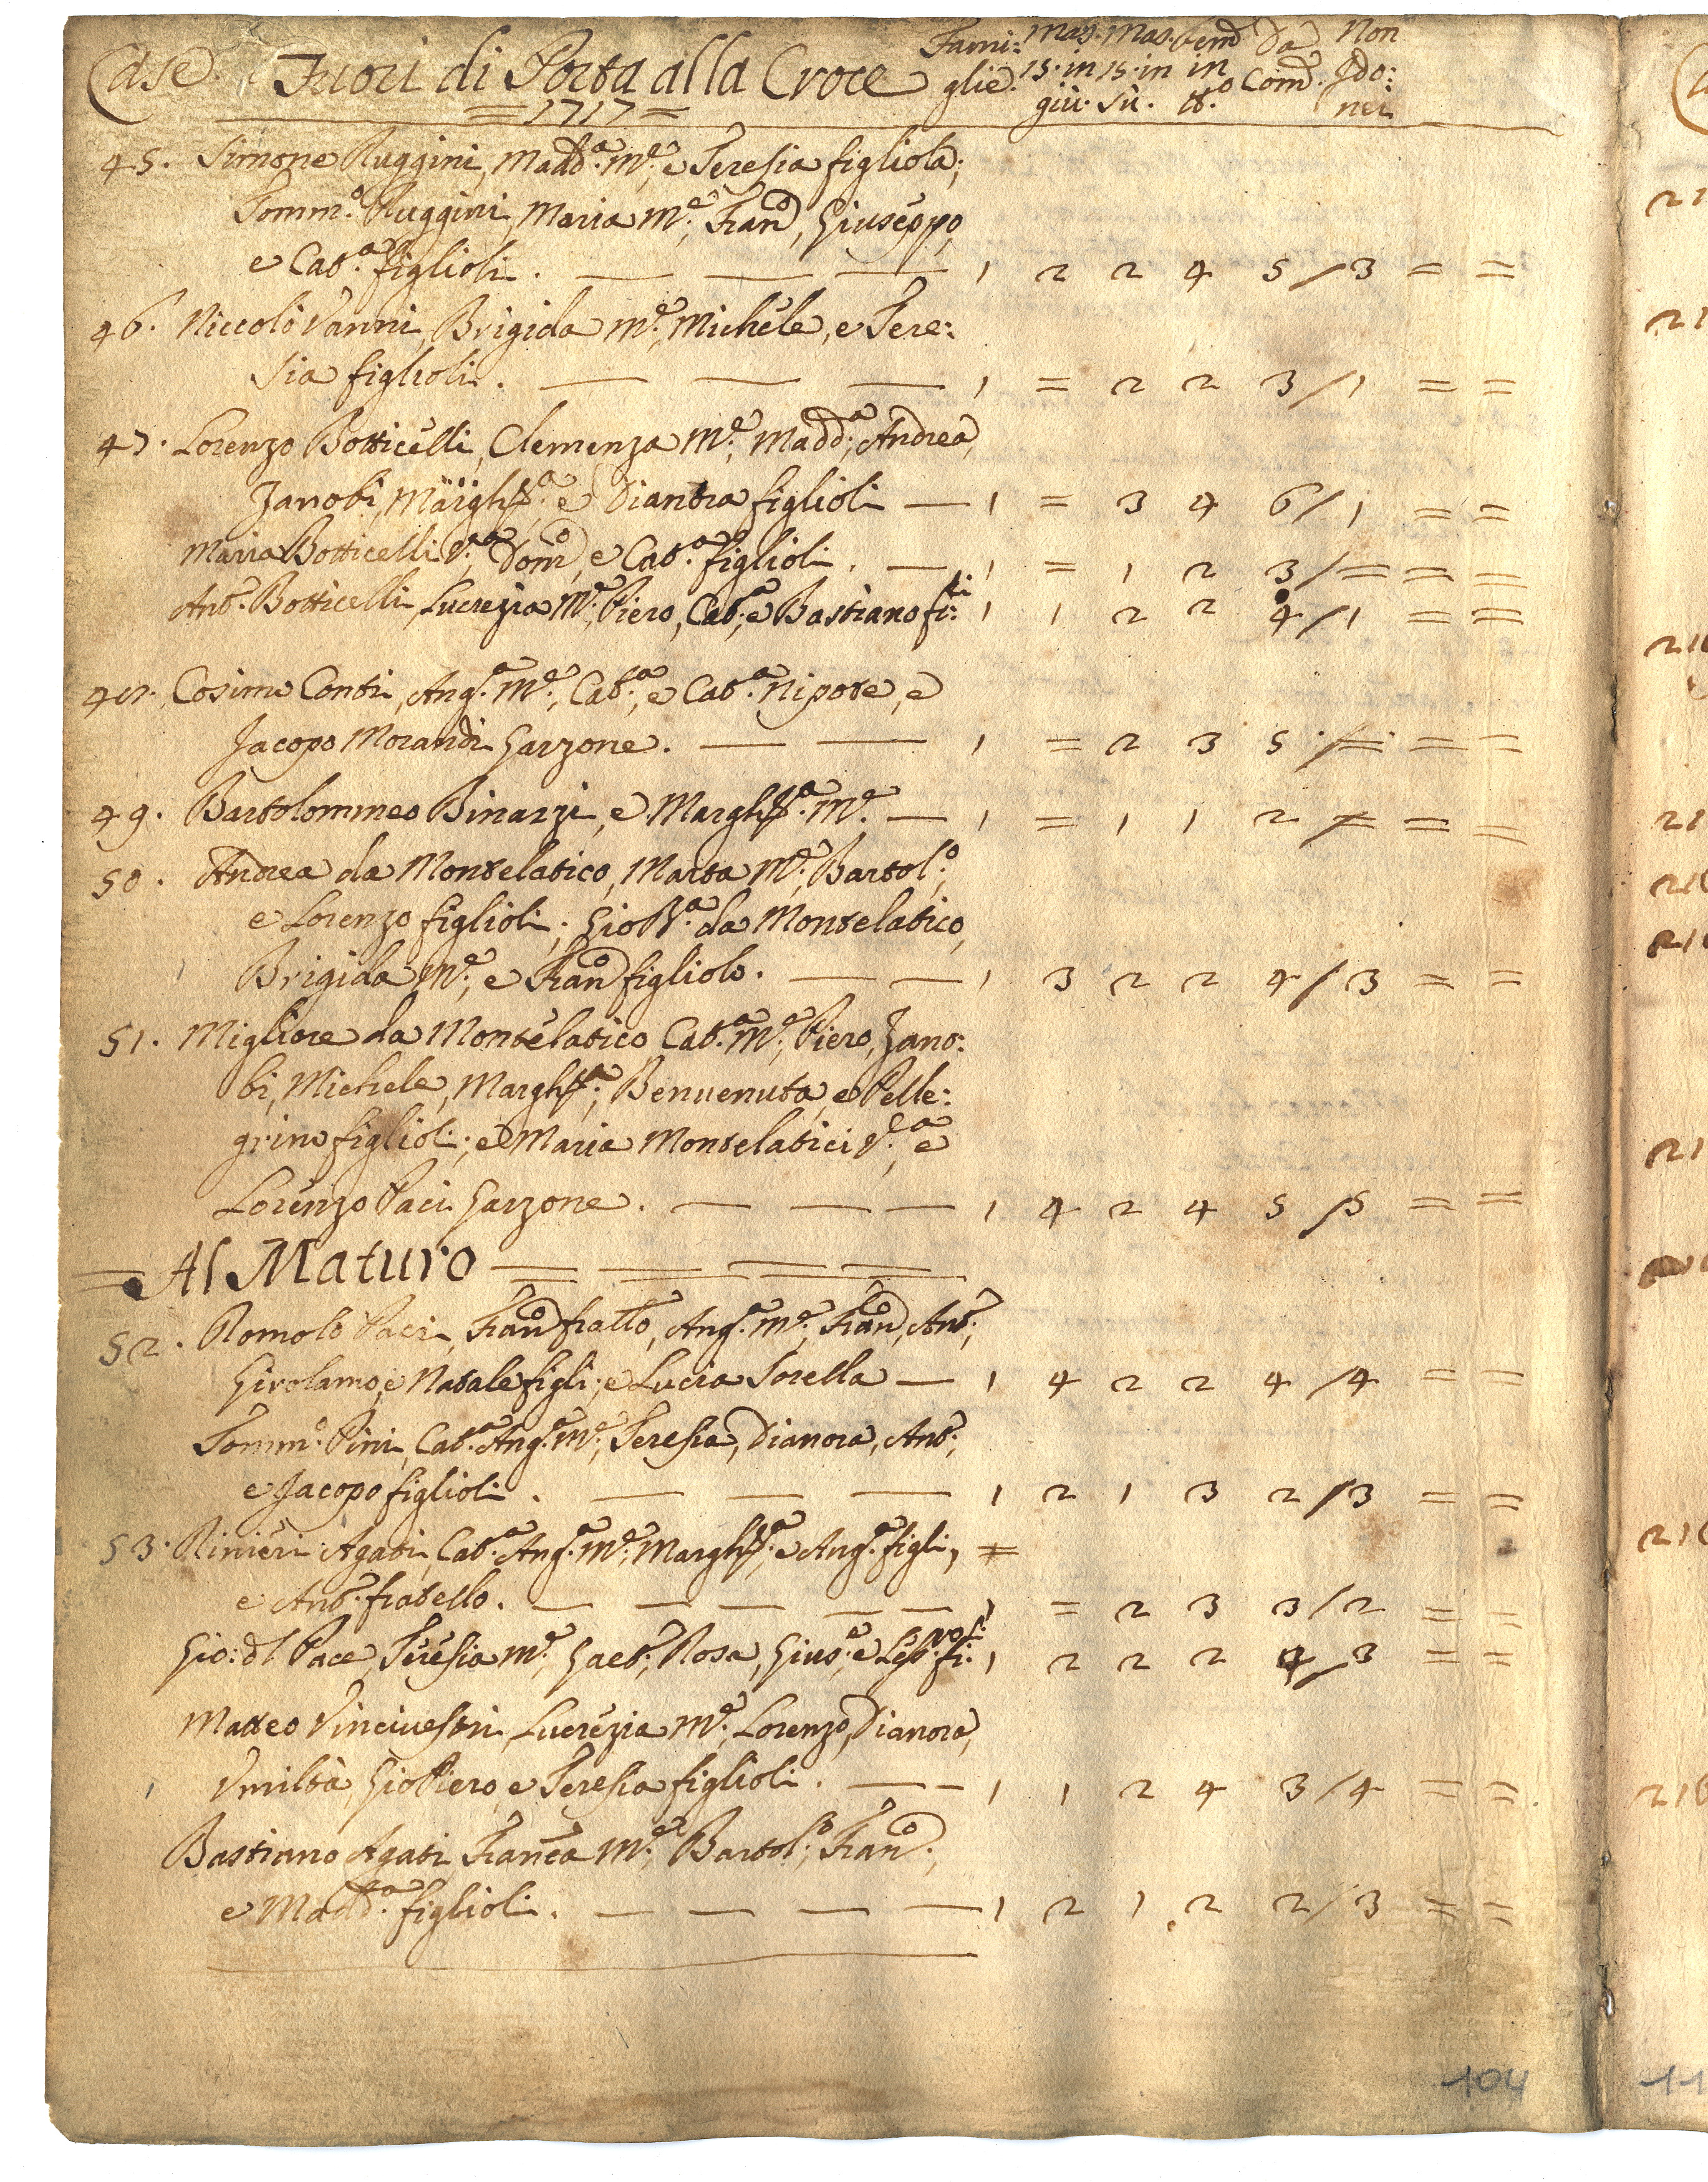 Case. Fuori di Porta alla Croce Fami: Mas. Mas. Fem̃ Da Non
=1717= glie. 15. in 15. in in Com̃. Ido:
giù. Sù. tt.º nei
45. Simone Ruggini, Madd.ª M.e, e Teresia figliola;
Tomm.º Ruggini, Maria M.e, Fran.º, Giuseppo,
e Cat.ª figlioli. — — — 1 2 2 4 5/3 = =
46. Niccolò Vanni, Brigida M.e, Michele, e Tere:
sia figlioli. — — — 1 = 2 2 3/1 = =
47. Lorenzo Botticelli, Clemenza M.e, Madd.ª, Andrea,
Zanobi, Margh.ta, e Dianora figlioli — 1 = 3 4 6/1 = =
Maria Botticelli V.ª, Dom.º, e Cat.ª figlioli. — 1 = 1 2 3/= = =
Ant.º Botticelli, Lucrezia M.e, Piero, Cat.ª, e Bastiano fi:li 1 1 2 2 4/1 = =
48. Cosimo Conti, Ang.ª M.e, Cat.ª, e Cat.ª Nipote, e
Jacopo Morandi Garzone. — — 1 = 2 3 5/= = =
49. Bartolommeo Binazzi, e Margh.ta M.e — 1 = 1 1 2/= = =
50. Andrea da Montelatico, Marta M.e, Bartol.º,
e Lorenzo figlioli; Gio Bt.ª da Montelatico,
Brigida M.e, e Fran.º figliolo. — — 1 3 2 2 4/3 = =
51. Migliore da Montelatico Cat.ª M.e, Piero, Zano:
bi, Michele, Margh.ta, Benvenuta, e Pelle:
grino figlioli; e Maria Montelatici V.ª, e
Lorenzo Paci Garzone. — — — 1 4 2 4 5/5 = =
= Al Maturo = = = =
52. Romolo Paci, Fran.º fratt.o, Ang.ª M.e, Fran.º, Ant.º,
Girolamo, e Natale figli; e Lucia Sorella — 1 4 2 2 4/4 = =
Tomm.º Pini, Cat.ª Ang.ª M.e, Teresia, Dianora, Ant.º,
e Jacopo figlioli. — — — 1 2 1 3 2/3 = =
53. Rinieri Agati, Cat.ª Ang.ª M.e, Margh.ta, e Ang.ª figli, =
e Ant.º fratello. — — — — — 1 = 2 3 3/2 = =
Gio: dl Pace, Teresia M.e, Gaet.º, Rosa, Gius.e, e fi: 1 2 2 2 4/3 = =
Matteo Vinciuestri, Lucrezia M.e, Lorenzo, Dianora,
Vmiltà, Gio Piero, e Teresia figlioli. — — 1 1 2 4 3/4 = =
Bastiano Agati Fran.ca M.e, Bartol.º, Fran.º,
e Madd.ª figlioli. — — — — 1 2 1 2 2/3 = =
104